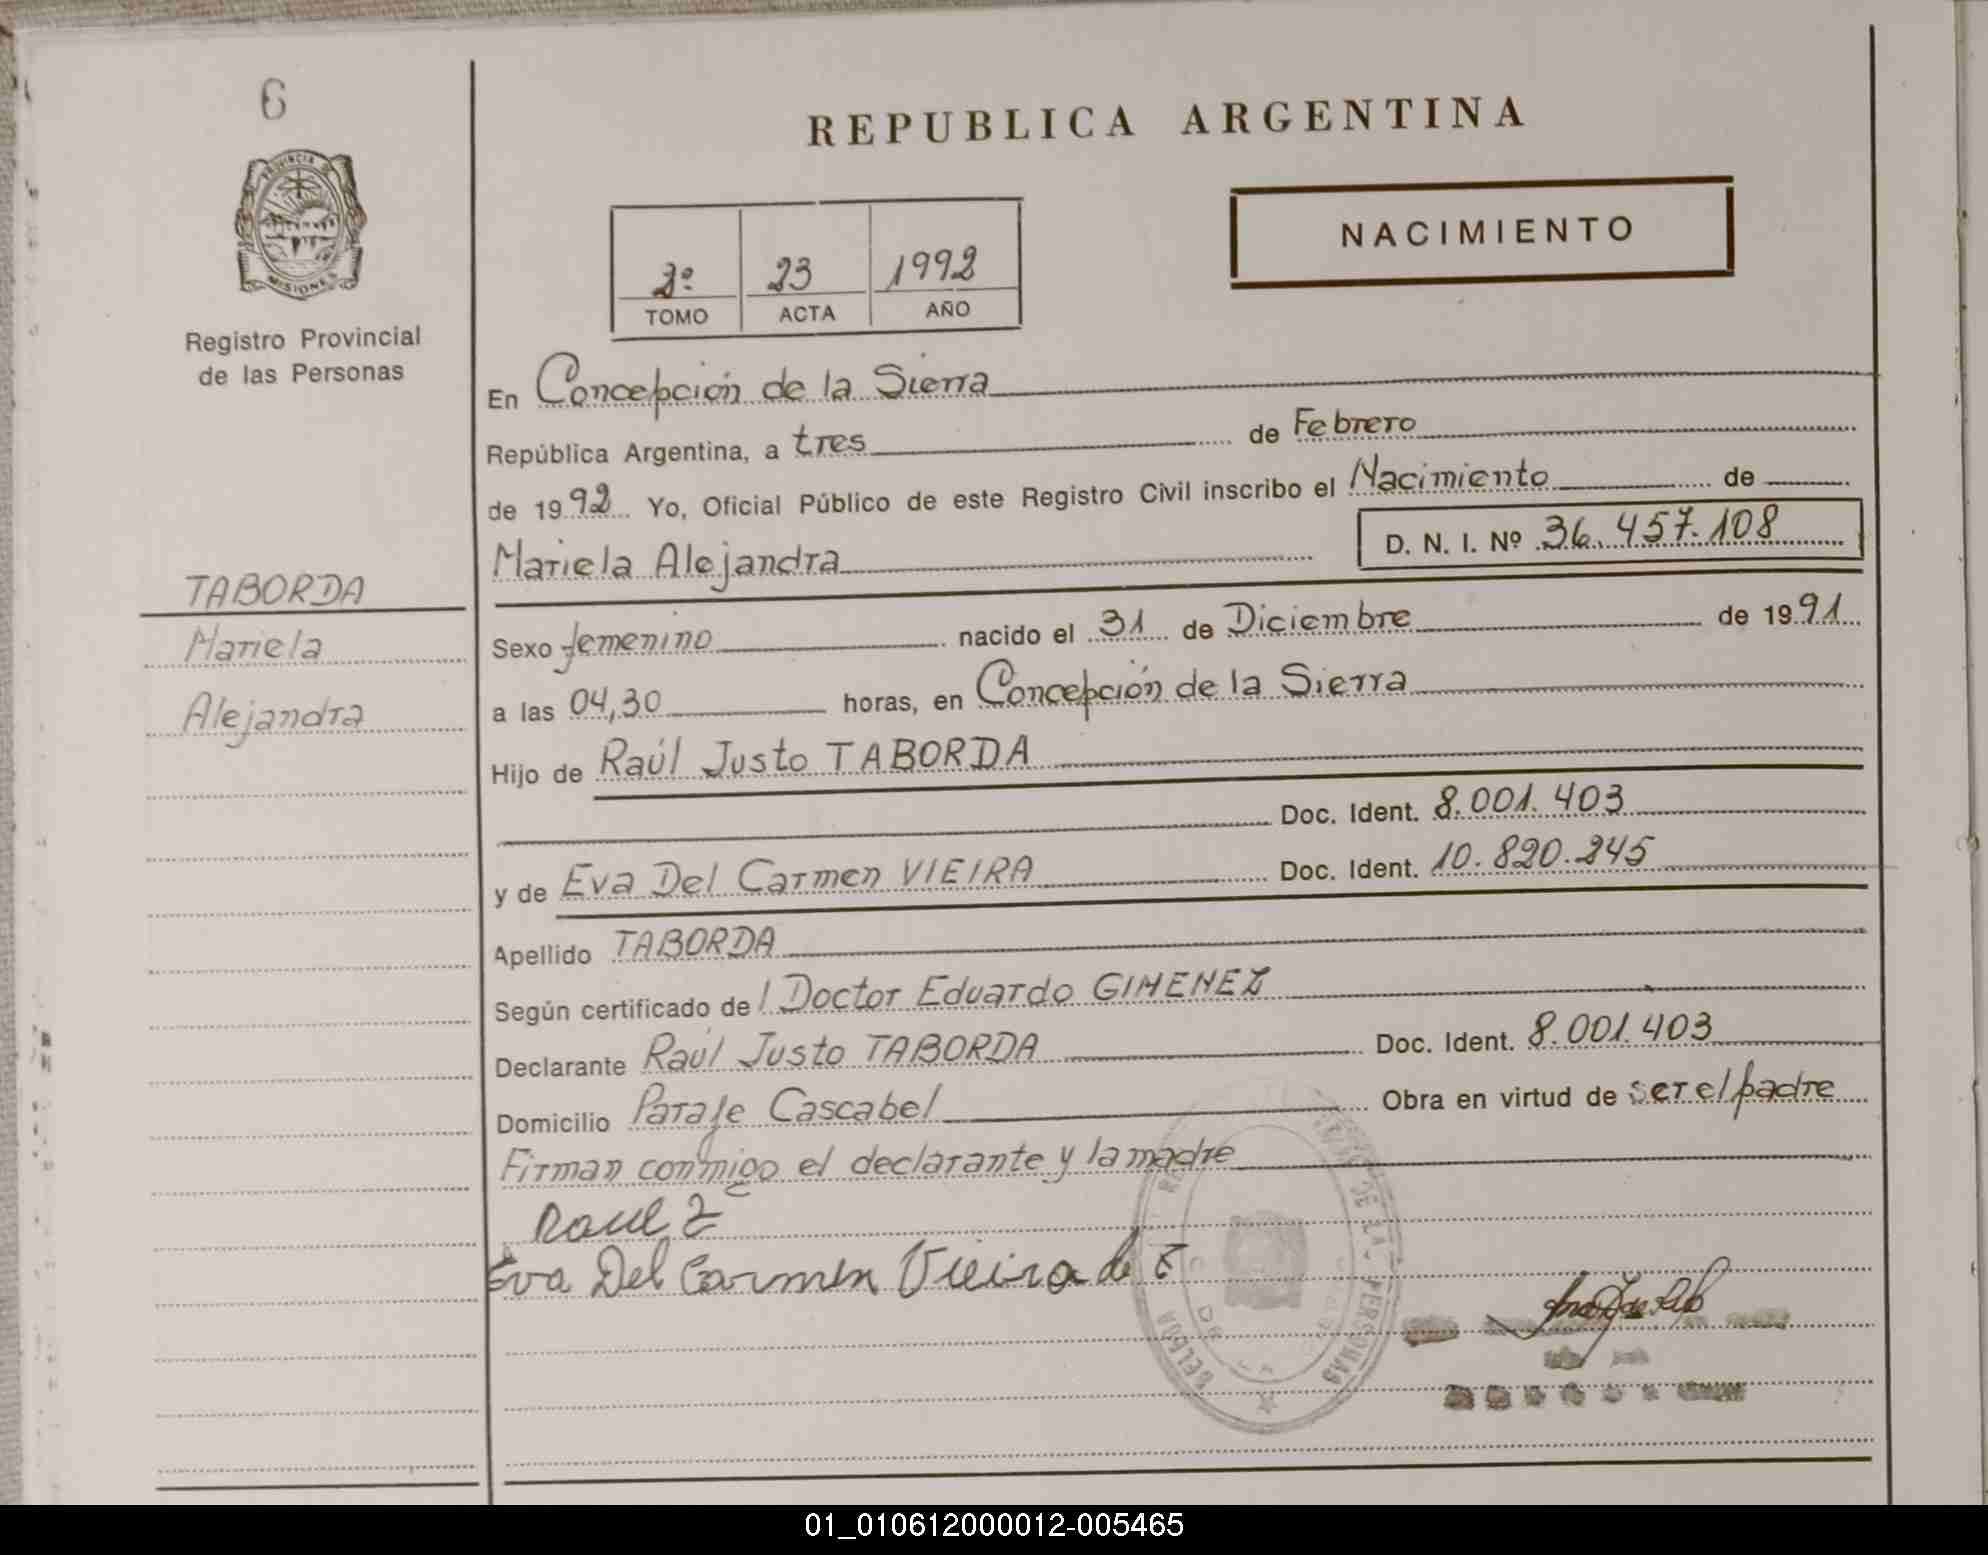 6
PROVINCIA DE
MISIONES
Registro Provincial
de las Personas
TABORDA
Mariela
Alejandra
REPUBLICA ARGENTINA
NACIMIENTO
2º 23 1992
TOMO ACTA AÑO
En Concepción de la Sierra
República Argentina, a tres de Febrero
de 1992 Yo, Oficial Público de este Registro Civil inscribo el Nacimiento de
Mariela Alejandra D. N. I. Nº 36.457.108
Sexo femenino nacido el 31 de Diciembre de 1991
a las 04,30 horas, en Concepción de la Sierra
Hijo de Raúl Justo TABORDA
Doc. Ident. 8.001.403
y de Eva Del Carmen VIEIRA Doc. Ident. 10.820.245
Apellido TABORDA
Según certificado del Doctor Eduardo GIMENEZ
Declarante Raúl Justo TABORDA Doc. Ident. 8.001.403
Domicilio Paraje Cascabel Obra en virtud de ser el padre
Firman conmigo el declarante y la madre
Raul T
Eva Del Carmen Vieira de T
DE LAS PERSONAS
01_010612000012-005465